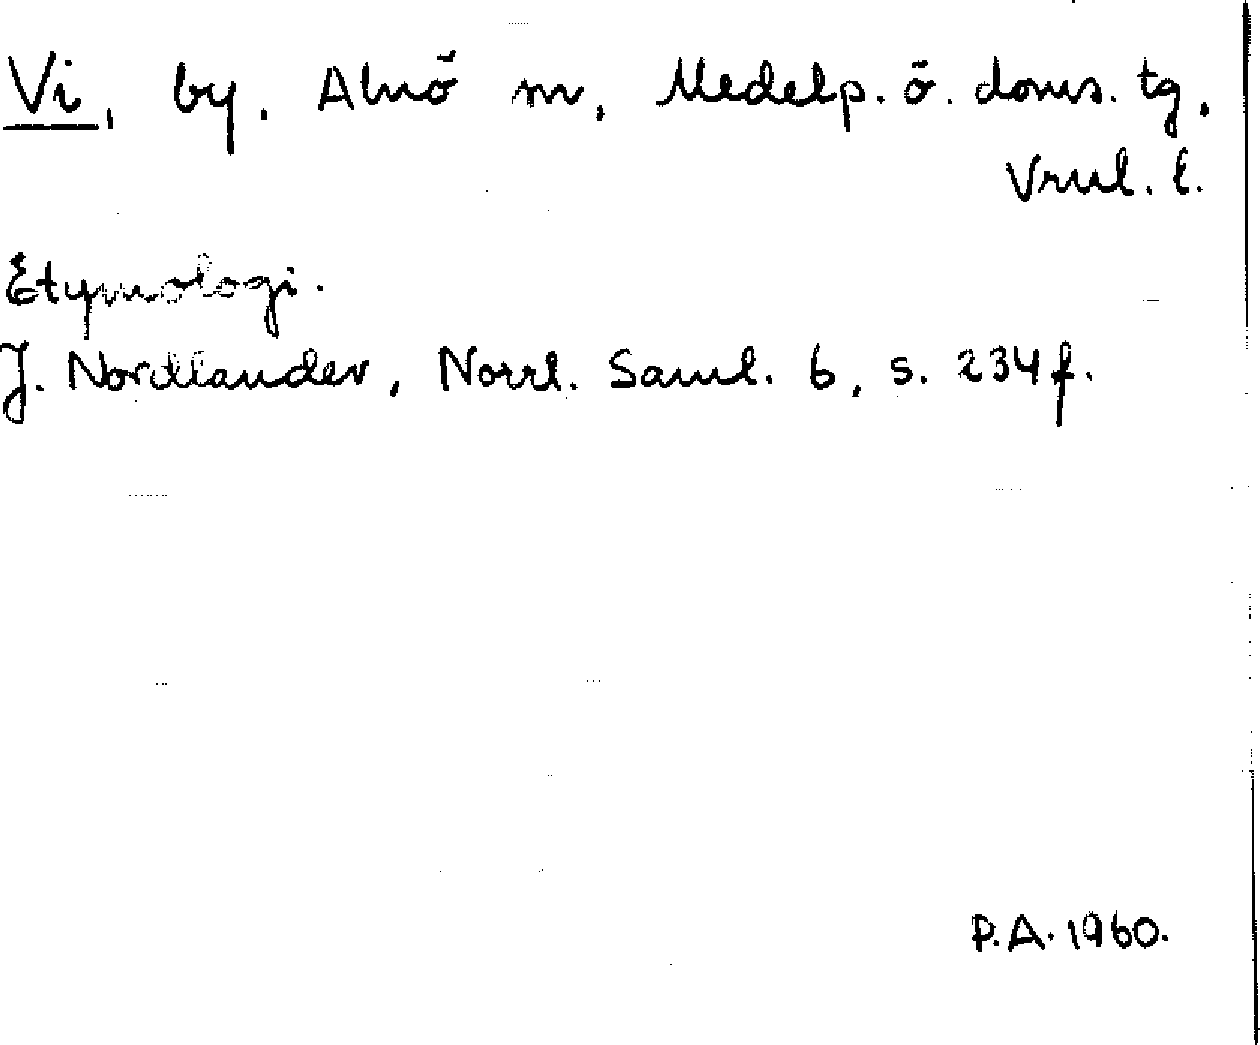 Vi, by. Alnö sn, Medelp. ö. doms. tg.
Vrnl. l.
Etymologi.
J. Nordlander, Norrl. Saml. 6, s. 234 f.
P.A. 1960.